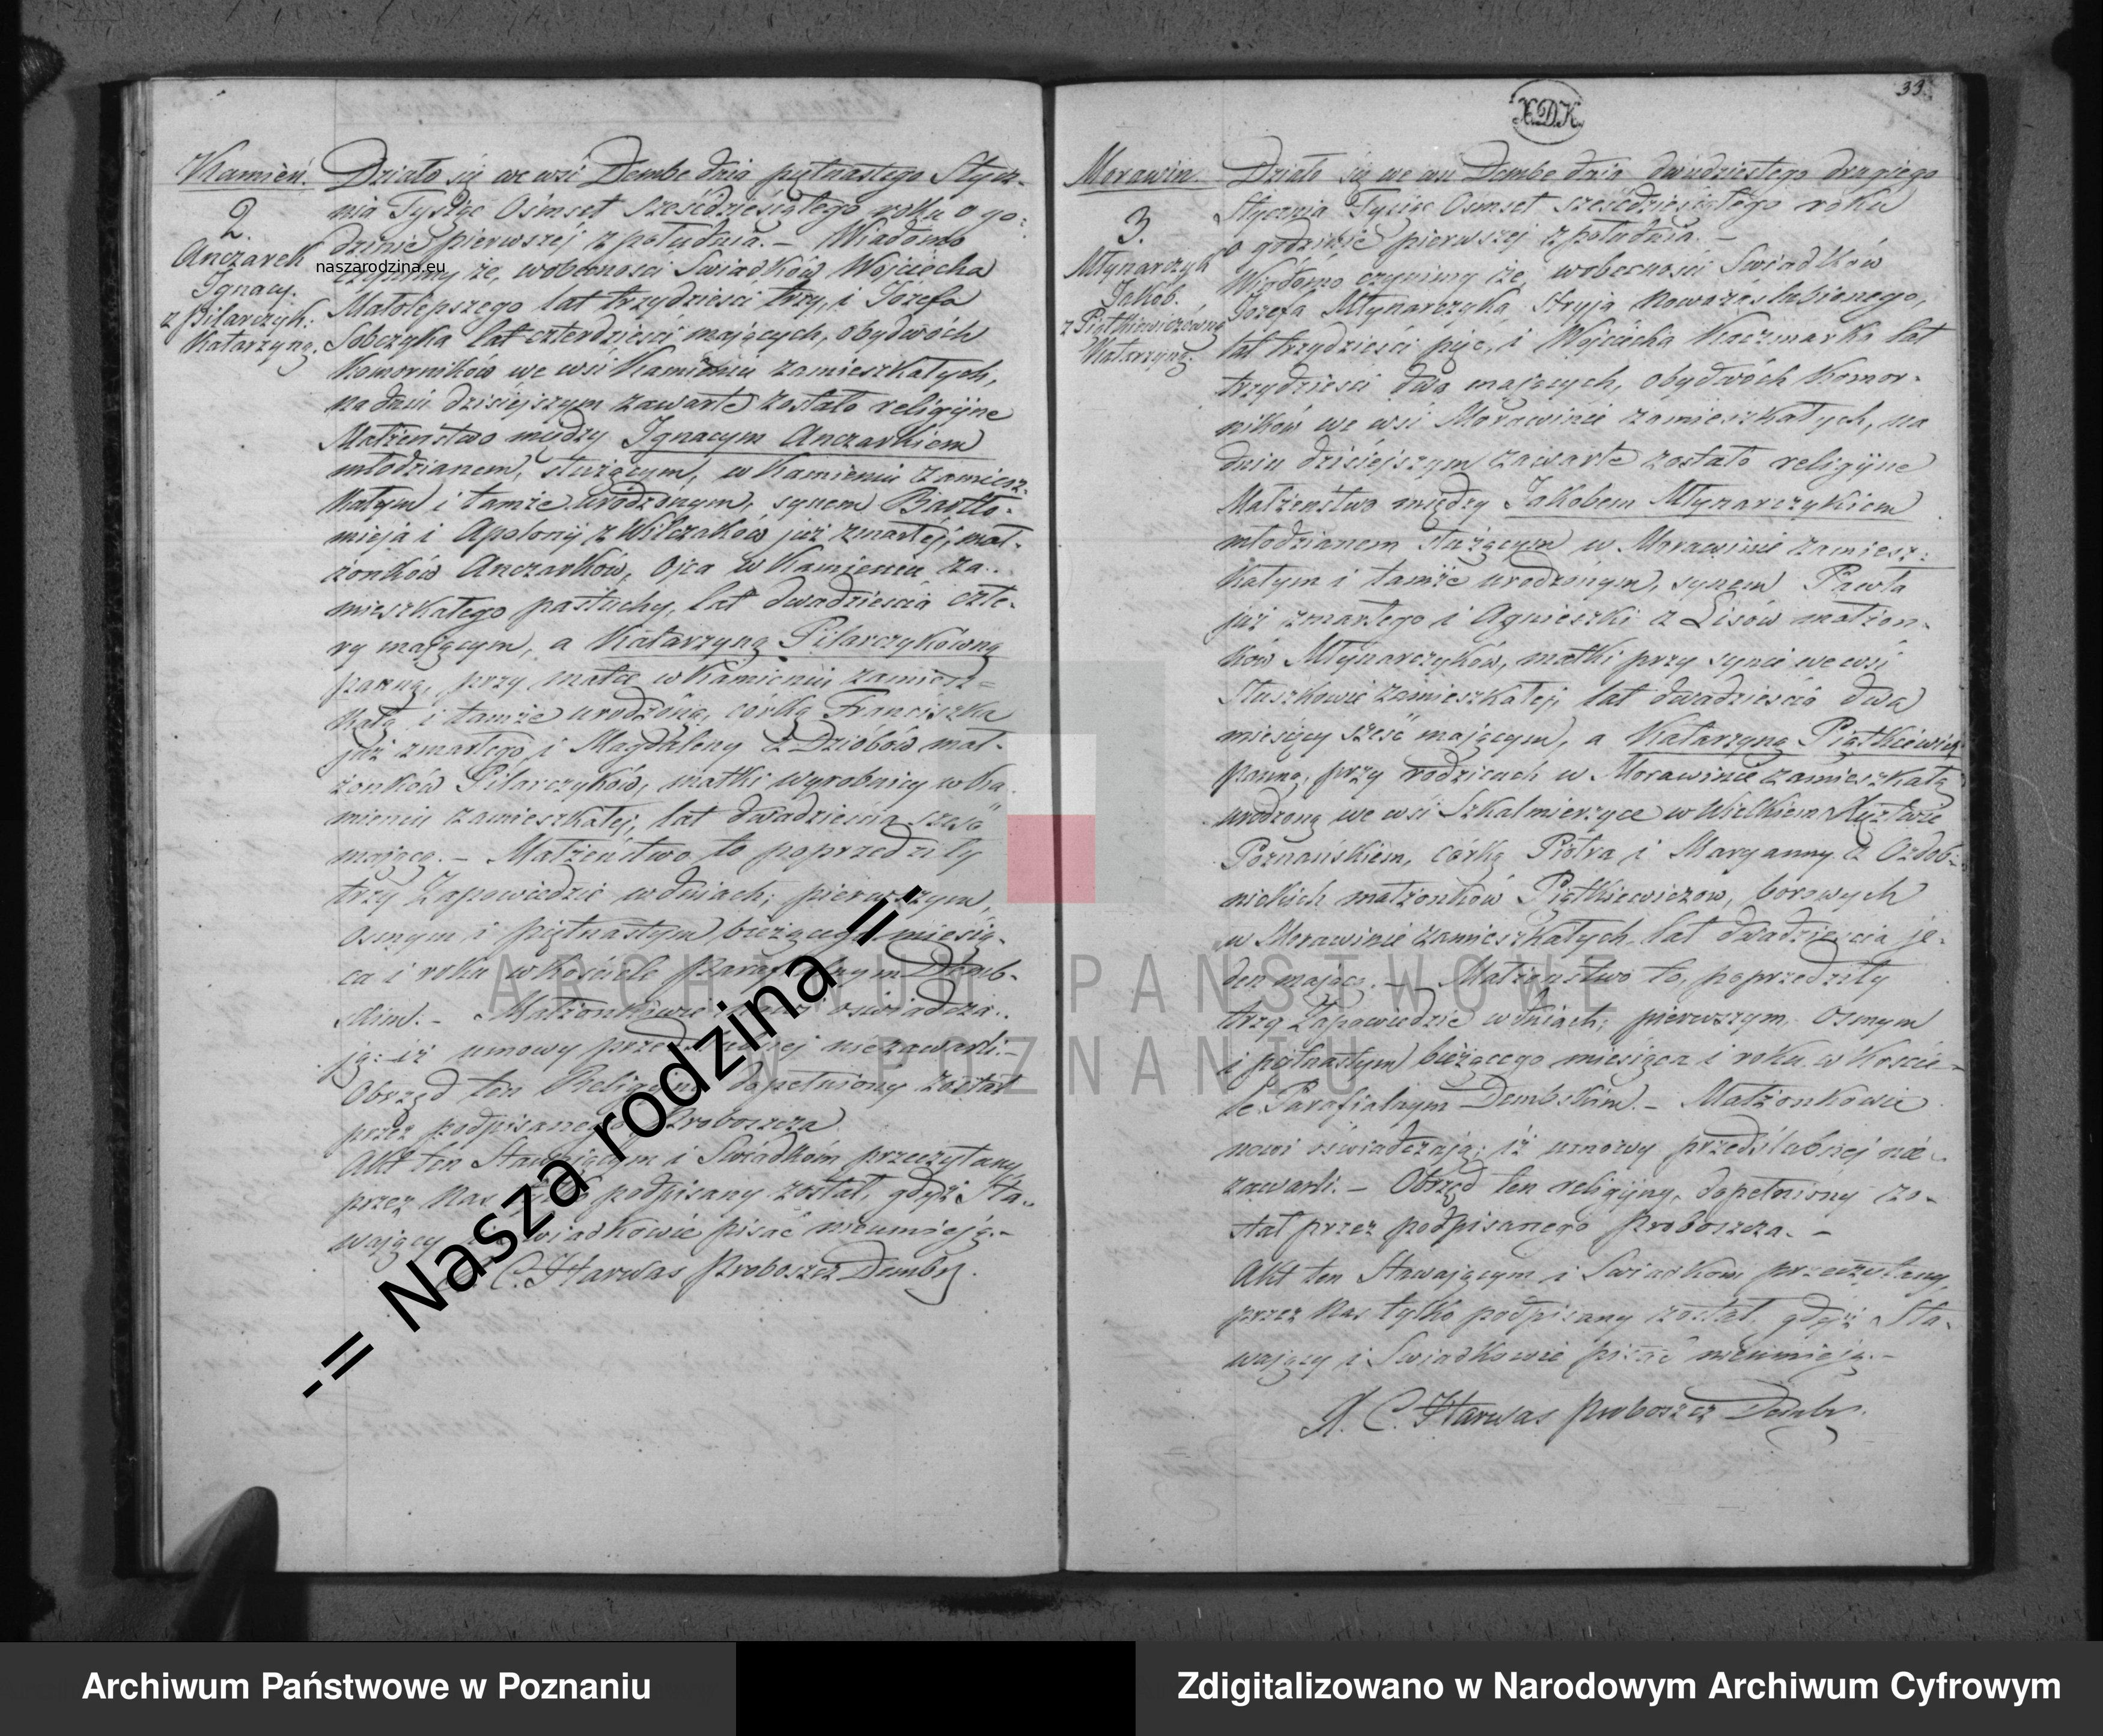 Kamień.
2.
Anczarek
Ignacy.
z Pilarczyk:
Katarzyną.
Działo się we wsi Dembe dnia piętnastego Stycz-
nia Tysiąc Ośmset sześćdziesiątego roku o go-
dzinie pierwszej z południa. – Wiadomo
czynimy że, wobecności Świadków Wojciecha
Małolepszego lat trzydzieści trzy, i Józefa
Sobczyka lat czterdzieści mających, obydwóch
Komorników we wsi Kamieniu zamieszkałych,
na dniu dzisiejszym zawarte zostało religijne
Małżeństwo między Ignacym Anczarkiem
młodzianem, służącym, w Kamieniu zamiesz-
kałym i tamże urodzonym, synem Bartło-
mieja i Apolonij z Wilczaków już zmarłej, mał-
żonków Anczarków, Ojca w Kamieniu za-
mieszkałego pastuchy, lat dwadzieścia czte-
ry mającym, a Katarzyną Pilarczykówną
panną, przy matce w Kamieniu zamiesz-
kałą i tamże urodzoną, córką Franciszka
już zmarłego i Magdaleny z Dziobów mał-
żonków Pilarczyków, matki wyrobnicy w Ka
mieniu zamieszkałej, lat dwadzieścia sześć
mającą. – Małżeństwo to poprzedziły
trzy Zapowiedzie w dniach; pierwszym,
osmym i piętnastym bieżącego miesią-
ca i roku w Kościele Parafialnym Demb-
skim. – Małżonkowie nowi oświadcza-
ją: iż umowy przedślubnej niezawarli. –
Obrzęd ten Religijny dopełniony został
przez podpisanego Proboszcza
Akt ten Stawającym i Świadkom przeczytany
przez Nas tylko podpisany został, gdyż Sta-
wający i Świadkowie pisać nieumieją. –
C. Harwas Proboszcz Dembs.
naszarodzina.eu
-= Nasza rodzina =-
33.
X.D.K.
Morawin.
3.
Młynarczyk
Jakób.
z Piątkiewiczówną
Katarzyną.
Działo się we wsi Dembe dnia dwudziestego drugiego
Stycznia Tysiąc Osmset sześćdziesiątego roku
o godzinie pierwszej z południa. –
Wiadomo czynimy że, wobecności Świadków
Jozefa Młynarczyka, stryja nowozaślubionego,
lat trzydzieści pięć, i Wojciecha Kaczmarka lat
trzydzieści dwa mających, obydwóch Komor-
ników we wsi Morawinie zamieszkałych, na
dniu dzisiejszym zawarte zostało religijne
Małżeństwo między Jakóbem Młynarczykiem
młodzianem służącym w Morawinie zamiesz-
kałym i tamże urodzonym, synem Pawła
już zmarłego i Agnieszki z Lisów małżon-
ków Młynarczyków, matki przy synie we wsi
Tłuszkowie zamieszkałej, lat dwadzieścia dwa
miesięcy sześć mającym, a Katarzyną Piątkiewicz
panną, przy rodzicach w Morawinie zamieszkałą
urodzoną we wsi Szkalmierzyce w Wielkiem Xięztwie
Poznańskiem, córką Piotra i Maryanny z Ozdob-
nickich małżonków Piątkiewiczów, borowych
w Morawinie zamieszkałych, lat dwadzieścia je-
den mającą. – Małżeństwo to, poprzedziły
trzy Zapowiedzie w dniach; pierwszym, osmym
i piętnastym bieżącego miesiąca i roku w Koście-
le Parafialnym Dembskim. – Małżonkowie
nowi oświadczają; iż umowy przedślubnej nie-
zawarli. – Obrzęd ten religijny, dopełniony zo-
stał przez podpisanego Proboszcza. –
Akt ten Stawającym i Świadkom przeczytany,
przez Nas tylko podpisany został, gdyż Sta-
wający i Świadkowie pisać nieumieją. –
X. C. Harwas Proboszcz Dembs.
ARCHIWUM PAŃSTWOWE
W POZNANIU
Archiwum Państwowe w Poznaniu
Zdigitalizowano w Narodowym Archiwum Cyfrowym